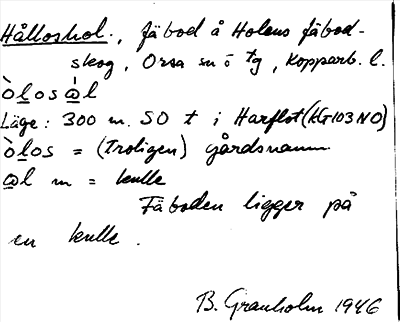 Hålloshol., fäbod å Holens fäbod-
skog, Orsa sn ö tg, Kopparb. l.
òlosàl
Läge: 300 m. SO t i Harflot (KG103NO)
òlos = (troligen) gårdsnamn
al m = kulle
Fäboden ligger på
en kulle.
B. Granholm 1946